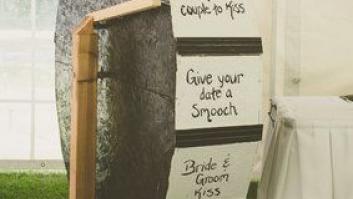 couple to Kiss
Give your
date a
Smooch
Bride &
Groom
Kiss